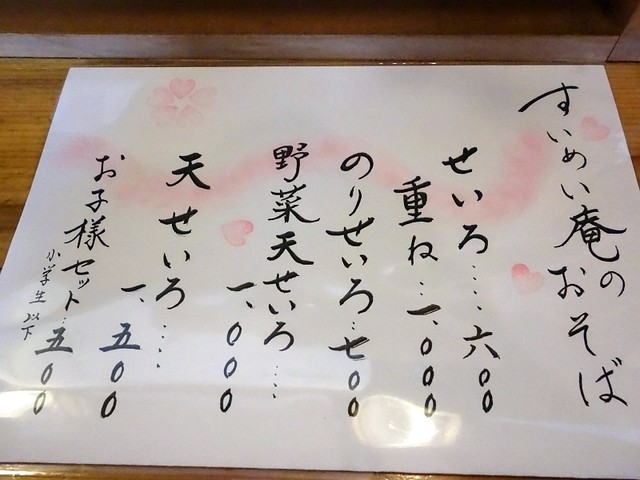 すいめい庵のおそば
せいろ‥‥六00
重ね‥一、000
のりせいろ‥七00
野菜天せいろ‥
一、000
天せいろ‥‥
一、五00
お子様セット‥五00
小学生以下